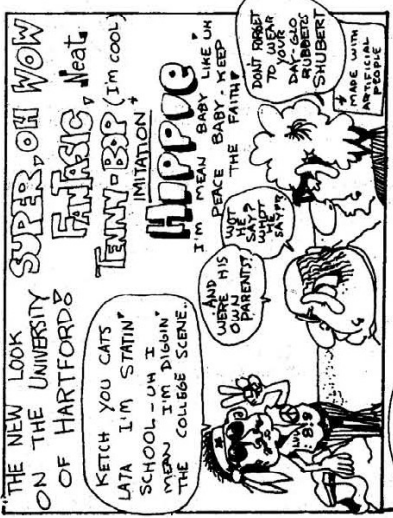 THE NEW LOOK
ON THE UNIVERSITY
OF HARTFORD!
SUPER, OH WOW
FANTASIC, Neat
TENNY-BOP (I'M COOL)
IMITATION
HIPPIE
I'M MEAN BABY LIKE UH
PEACE BABY - KEEP
THE FAITH
KETCH YOU CATS
LATA I'M STATIN'
SCHOOL - UH I
MEAN I'M DIGGIN'
THE COLLEGE SCENE..
AND
WE'RE HIS
OWN
PARENTS!
WOT
HE
SAY?
WHOT
HE
SAY?
DON'T FORGET
TO WEAR
YOUR
DAY-GLO
RUBBERS
SHUBERT
* MADE WITH
ARTIFICIAL
PEOPLE
LUV